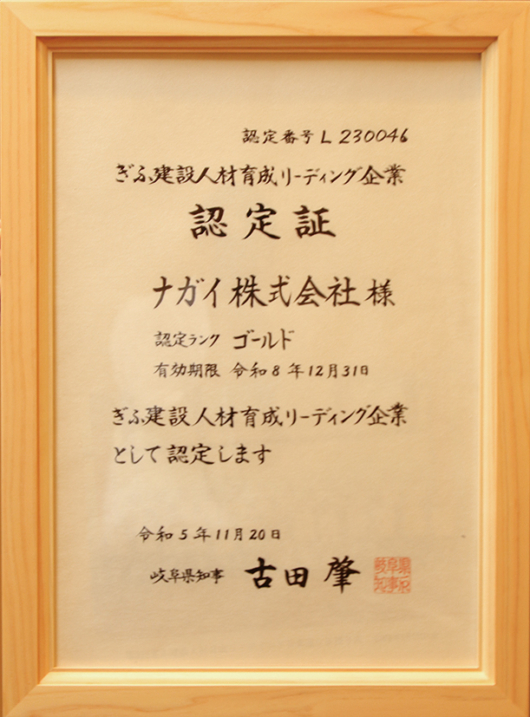 認定番号 L 230046
ぎふ建設人材育成リーディング企業
認定証
ナガイ株式会社様
認定ランク ゴールド
有効期限 令和8年12月31日
ぎふ建設人材育成リーディング企業
として認定します
令和5年11月20日
岐阜県知事 古田 肇